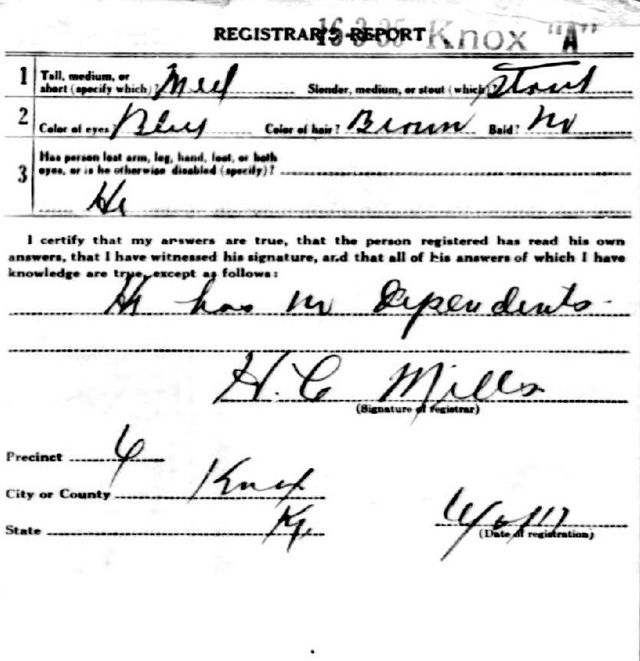 REGISTRAR'S REPORT 16-3-35 Knox "A"
1 Tall, medium, or short (specify which) Med Slender, medium, or stout (which) Stout
2 Color of eyes Blue Color of hair? Brown Bald? No
3 Has person lost arm, leg, hand, foot, or both
eyes, or is he otherwise disabled (specify)?
I certify that my answers are true, that the person registered has read his own
answers, that I have witnessed his signature, and that all of his answers of which I have
knowledge are true, except as follows:
He has no Dependents
H. C Mills
(Signature of registrar)
Precinct 6
City or County Knox
State Ky.
(Date of registration)